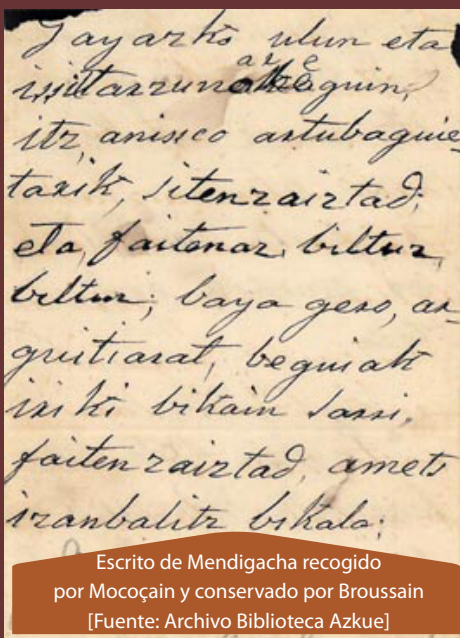 Gayazko ulun eta
itz, anisco artubaguie_
tarik, jitenzaiztad;
eta, faitenaz, biltur,
biltur; baya gero, ar_
guitiarat, beguiak
iriki bikain sarri,
faitenzaiztad, amets
izanbalitz bikala;
Escrito de Mendigacha recogido
por Mocoçain y conservado por Broussain
[Fuente: Archivo Biblioteca Azkue]